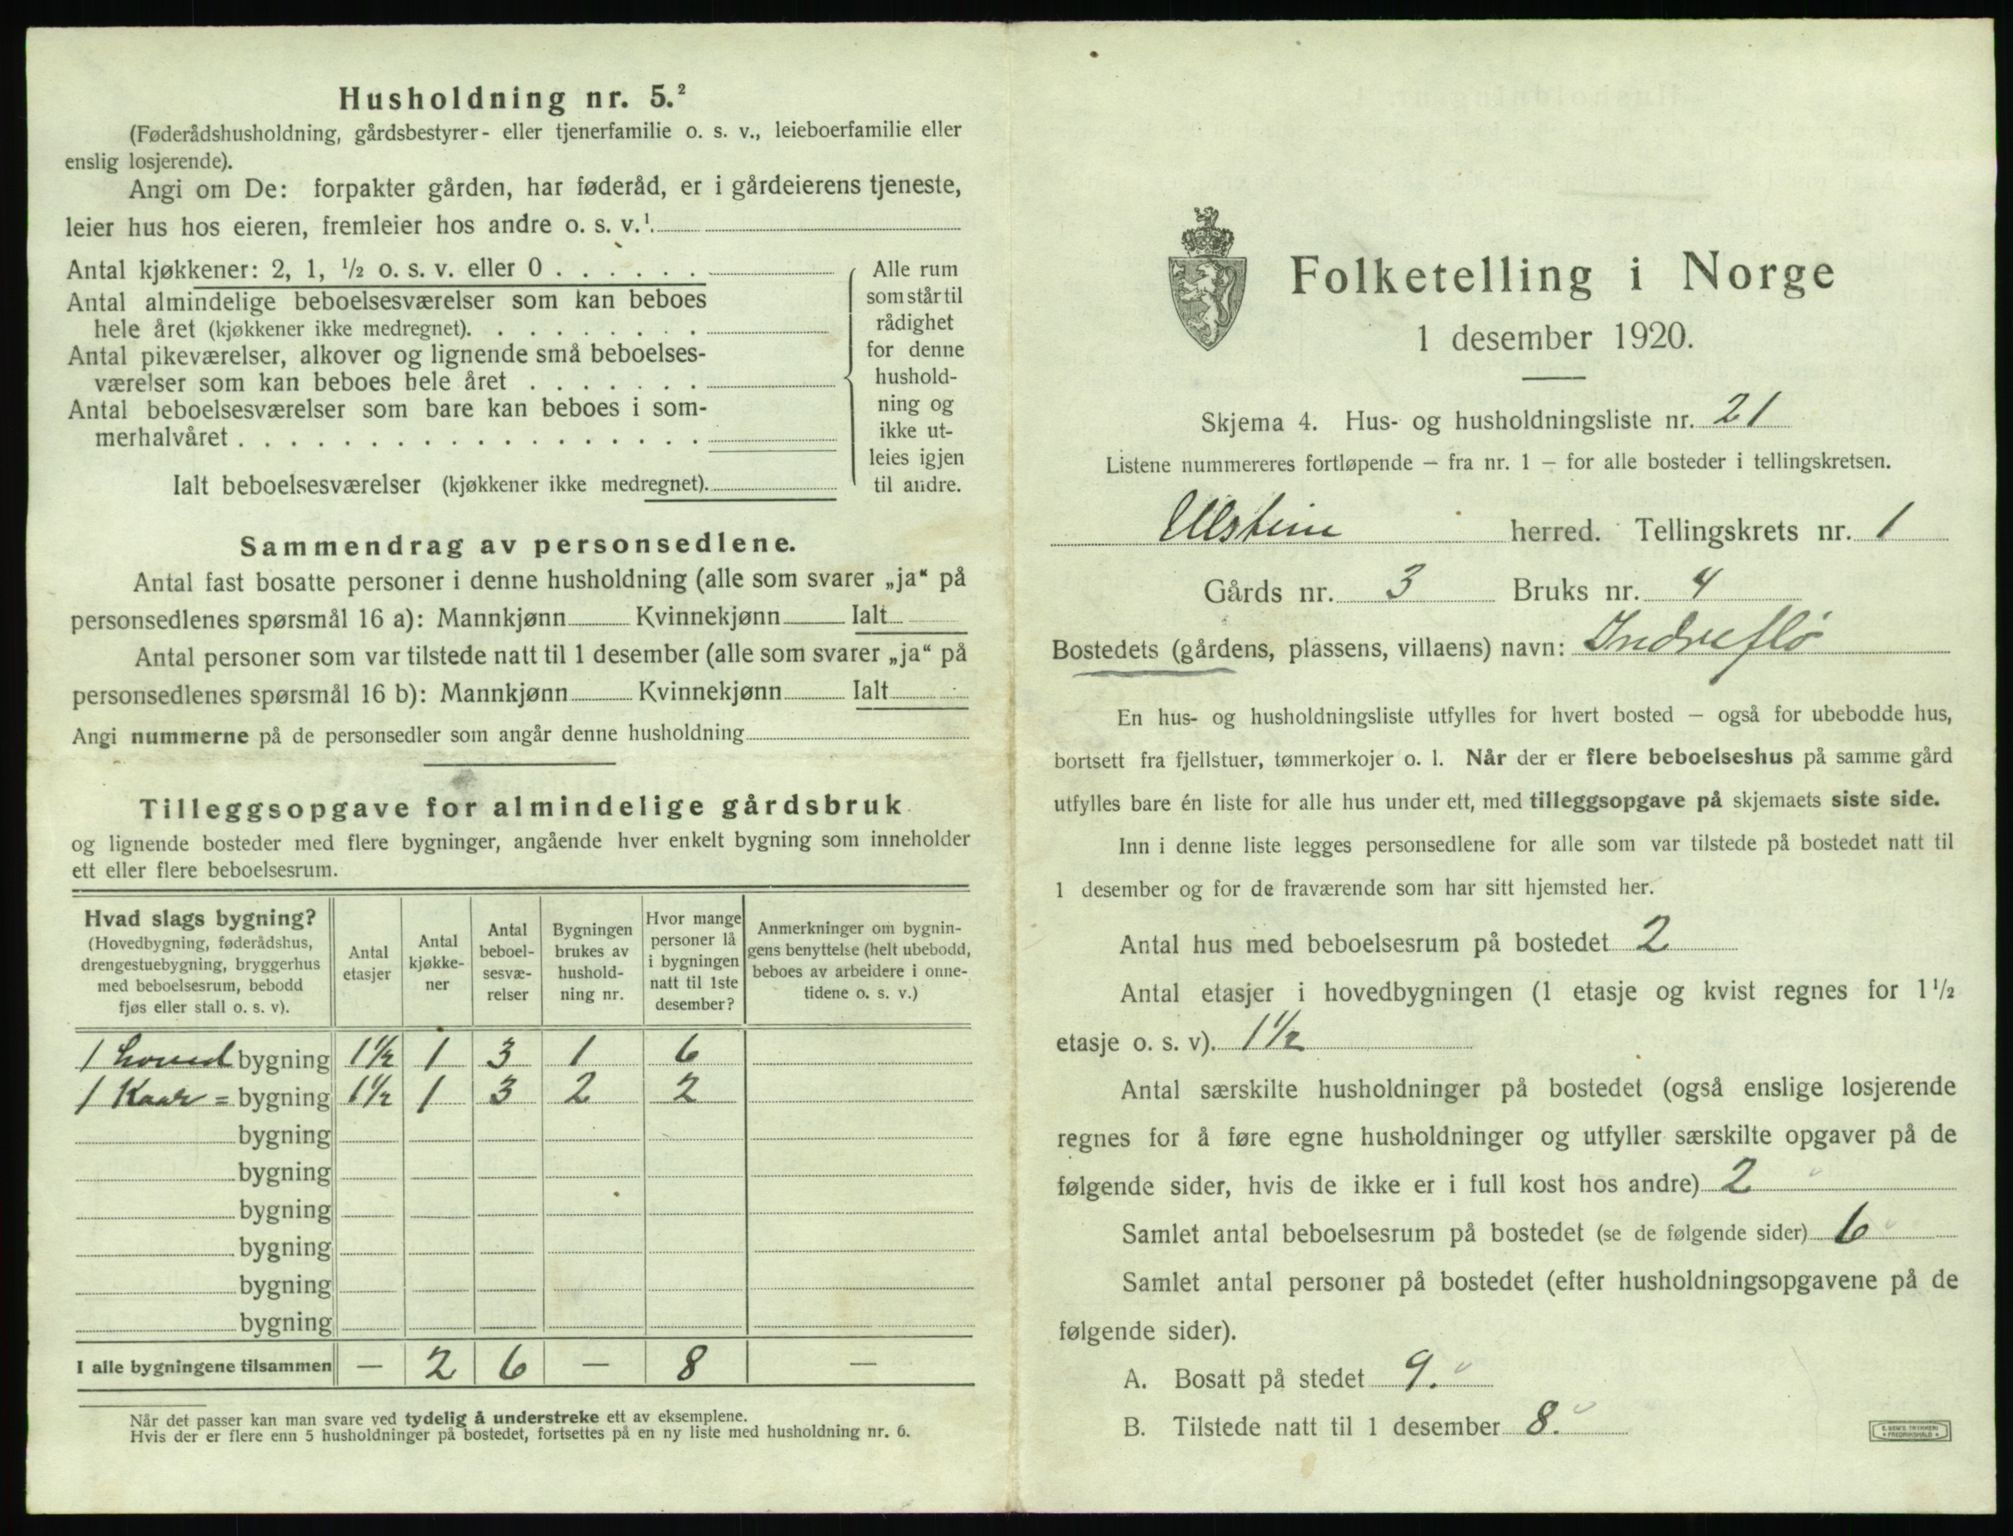 Husholdning nr. 5.²
(Føderådshusholdning, gårdsbestyrer- eller tjenerfamilie o. s. v., leieboerfamilie eller
enslig losjerende).
Angi om De: forpakter gården, har føderåd, er i gårdeierens tjeneste,
leier hus hos eieren, fremleier hos andre o. s. v.¹.
Antal kjøkkener: 2, 1, ¹/₂ o. s. v. eller 0 . . . . . .
Antal almindelige beboelsesværelser som kan beboes
hele året (kjøkkener ikke medregnet). . . . . . . . .
Antal pikeværelser, alkover og lignende små beboelses-
værelser som kan beboes hele året . . . . . . .
Antal beboelsesværelser som bare kan beboes i som-
merhalvåret . . . . . . . . . . . . . . . . . .
Ialt beboelsesværelser (kjøkkener ikke medregnet).
Alle rum
som står til
rådighet
for denne
hushold-
ning og
ikke ut-
leies igjen
til andre.
Sammendrag av personsedlene.
Antal fast bosatte personer i denne husholdning (alle som svarer „ja“ på
personsedlenes spørsmål 16 a): Mannkjønn Kvinnekjønn Ialt
Antal personer som var tilstede natt til 1 desember (alle som svarer „ja“ på
personsedlenes spørsmål 16 b): Mannkjønn Kvinnekjønn Ialt
Angi nummerne på de personsedler som angår denne husholdning
Tilleggsopgave for almindelige gårdsbruk
og lignende bosteder med flere bygninger, angående hver enkelt bygning som inneholder
ett eller flere beboelsesrum.
Hvad slags bygning?
(Hovedbygning, føderådshus,
drengestuebygning, bryggerhus
med beboelsesrum, bebodd
fjøs eller stall o. s. v).
Antal
etasjer
Antal
kjøkke-
ner
Antal
beboel-
sesvæ-
relser
Bygningen
brukes av
hushold-
ning nr.
Hvor mange
personer lå
i bygningen
natt til 1ste
desember?
Anmerkninger om bygnin-
gens benyttelse (helt ubebodd,
beboes av arbeidere i onne-
tidene o. s. v.)
1 hoved bygning 1½ 1 3 1 6
1 Kaar = bygning 1½ 1 3 2 2
bygning
bygning
bygning
bygning
bygning
bygning
I alle bygningene tilsammen — 2 6 — 8 —
Når det passer kan man svare ved tydelig å understreke ett av eksemplene.
Hvis der er flere enn 5 husholdninger på bostedet, fortsettes på en ny liste med husholdning nr. 6.
Folketelling i Norge
1 desember 1920.
Skjema 4. Hus- og husholdningsliste nr. 21
Listene nummereres fortløpende – fra nr. 1 – for alle bosteder i tellingskretsen.
Ulstein herred. Tellingskrets nr. 1
Gårds nr. 3 Bruks nr. 4
Bostedets (gårdens, plassens, villaens) navn: Indreflø
En hus- og husholdningsliste utfylles for hvert bosted – også for ubebodde hus,
bortsett fra fjellstuer, tømmerkojer o. l. Når der er flere beboelseshus på samme gård
utfylles bare én liste for alle hus under ett, med tilleggsopgave på skjemaets siste side.
Inn i denne liste legges personsedlene for alle som var tilstede på bostedet natt til
1 desember og for de fraværende som har sitt hjemsted her.
Antal hus med beboelsesrum på bostedet 2
Antal etasjer i hovedbygningen (1 etasje og kvist regnes for 1¹/₂
etasje o. s. v). 1½
Antal særskilte husholdninger på bostedet (også enslige losjerende
regnes for å føre egne husholdninger og utfyller særskilte opgaver på de
følgende sider, hvis de ikke er i full kost hos andre) 2
Samlet antal beboelsesrum på bostedet (se de følgende sider) 6
Samlet antal personer på bostedet (efter husholdningsopgavene på de
følgende sider).
A. Bosatt på stedet 9.
B. Tilstede natt til 1 desember 8.